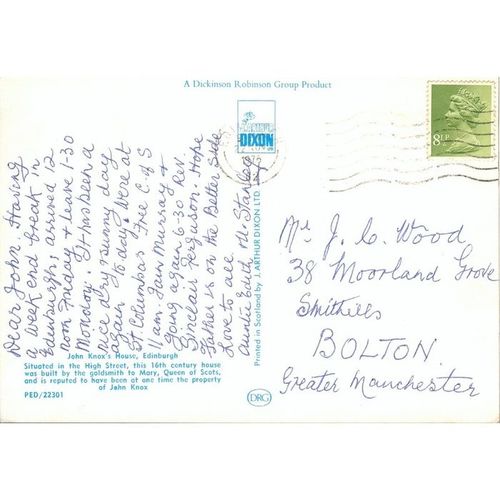 A Dickinson Robinson Group Product
Dear John. Having
a week end break in
Edinburgh; arrived 12
noon Friday & leave 1-30
Monday. It has been a
nice dry sunny day
again to day. Were at
St Columbas Free C. of S
11 am. Iain Murray &
going again 6-30 Rev.
Sinclair Ferguson. Hope
Father is on the Better side
Love to all
Auntie Edith, Stanley
John Knox's House, Edinburgh
Situated in the High Street, this 16th century house
was built by the goldsmith to Mary, Queen of Scots,
and is reputed to have been at one time the property
of John Knox
PED/22301
ARTHUR
DIXON
Printed in Scotland by J. ARTHUR DIXON LTD.
DRG
8½P
Mr J. C. Wood
38 Moorland Grove
Smithills
BOLTON
Greater Manchester